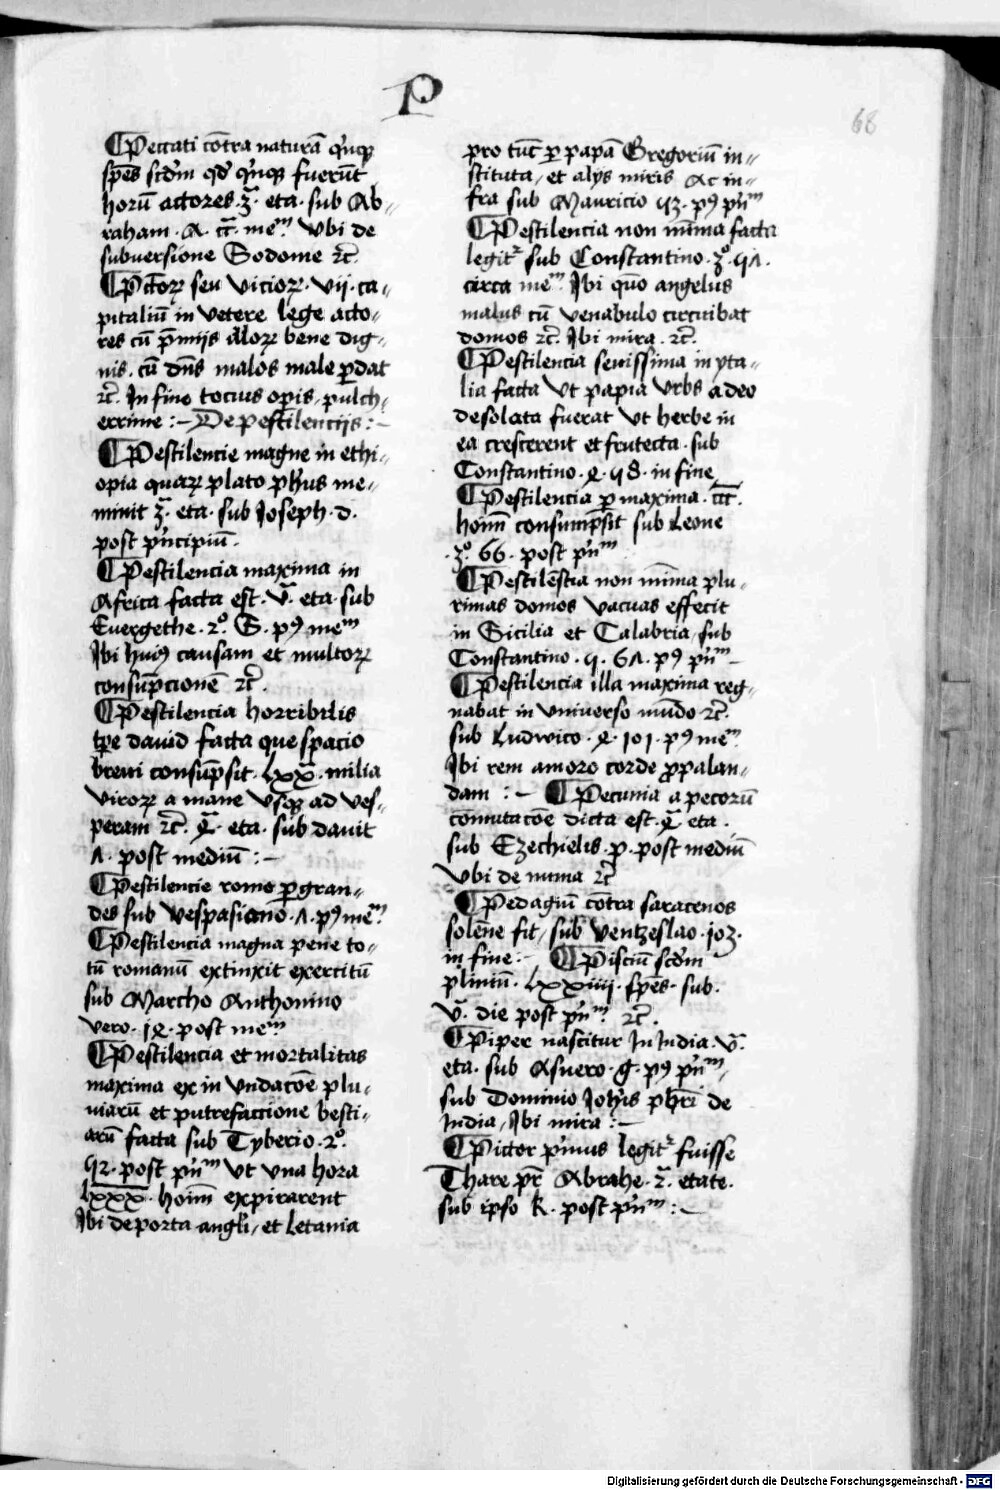 P
68
¶Peccati cōtra naturā q̇nqꝫ
sp̄es scd̄m qd̄ q̇nqꝫ fuerūt
horū actores .3ᵃ. eta. sub Ab-
raham .A. cͣ. meᵐ. Ubi de
subversione Sodome ꝛc̄
¶Pctōrꝝ seu viciorꝝ .vij. ca-
pitaliū in vetere lege acto-
res cū p̄mijs illorꝝ bene dig-
nis. cū dn̄s malos male ꝑdat
ꝛc̄. In fine tocius opis, pulch-
errime :- De pestilencijs :-
¶Pestilencie magne in ethi-
opia quarꝝ plato ph̄us me-
minit 3ᵃ. eta. sub Joseph .d.
post pͥncipiū.
¶Pestilencia maxima in
Africa facta est .vᵃ. eta. sub
Evergethe .2º. S. pꝰ meᵐ
Ibi huiꝰ causam et multorꝝ
consūpcionē ꝛc̄.
¶Pestilencia horribilis
tp̄e david facta que spacio
brevi consūpsit .lxx̄. milia
virorꝝ a mane usqꝫ ad ves-
peram ꝛc̄. 4ᵃ. eta. sub davit
Λ. post mediū :-
¶Pestilencie rome ꝑgran-
des sub vespasiano .Λ. pꝰ meᵐ
¶Pestilencia magna pene to-
tū romanū extinxit exercitū
sub Marcho Anthonino
vero .1ꝝ. post meᵐ
¶Pestilencia et mortalitas
maxima ex in undacōe plu-
viarū et putrefactione besti-
arū facta sub Tyberio .2º.
92. post pͥnᵐ ut una hora
lxxx. hoīm expirarent
Ibi de porta angli, et letania
pro tūc ꝑ papā Gregoriū in-
stituta, et alys miris Ac in-
fra sub Mauricio 93. pꝰ pͥnᵐ
¶Pestilencia non mīma facta
legitᵘʳ sub Constantino .3º. 9Λ.
circa meᵐ. Ibi quō angelus
malus cū venabulo circuibat
domos ꝛc̄. Ibi mira . ꝛc̄.
¶Pestilencia sevissima in yta-
lia facta ut papia urbs adeo
desolata fuerat ut herbe in
ea crescerent et frutecta. sub
Constantino .4. 98. in fine
¶Pestilencia ꝑ maxima .ccc̄.
hoīm consumpsit sub Leone
.3º. 66. post pͥnᵐ
¶Pestilēscia non mīma plu-
rimas domos vacuas effecit
in Sicilia et Calabria, sub
Constantino .9. 6Λ. pꝰ pͥnᵐ -
¶Pestilencia illa maxima reg-
nabat in universo mūdo ꝛc̄.
sub Ludwico .4. 101. pꝰ meᵐ
Ibi rem amoro corde ꝓpalan-
dam :- ¶Pecunia a pecorū
cōmutacōe dicta est. 4ᵃ eta.
sub Ezechielis .p. post mediū
Ubi de numa ꝛc̄
¶Pedagiū cōtra saracenos
solēne fit, sub ventzeslao .103.
in fine :- ¶Pisciū scd̄m
pliniū .lxxiiii. sp̄es. sub.
vᵃ. die post pͥnᵐ. ꝛc̄.
¶Piper nascitur In India .vᵃ.
eta. sub Asuero .g. pꝰ pͥnᵐ,
sub Dominio Joh̄is pb̄ri de
India, Ibi mira :-
¶Pictor pͥmus legitᵘʳ fuisse
Thare pr̄ Abrahe .2ᵃ. etate.
sub ipso K. post pͥnᵐ :-
Digitalisierung gefördert durch die Deutsche Forschungsgemeinschaft - DFG